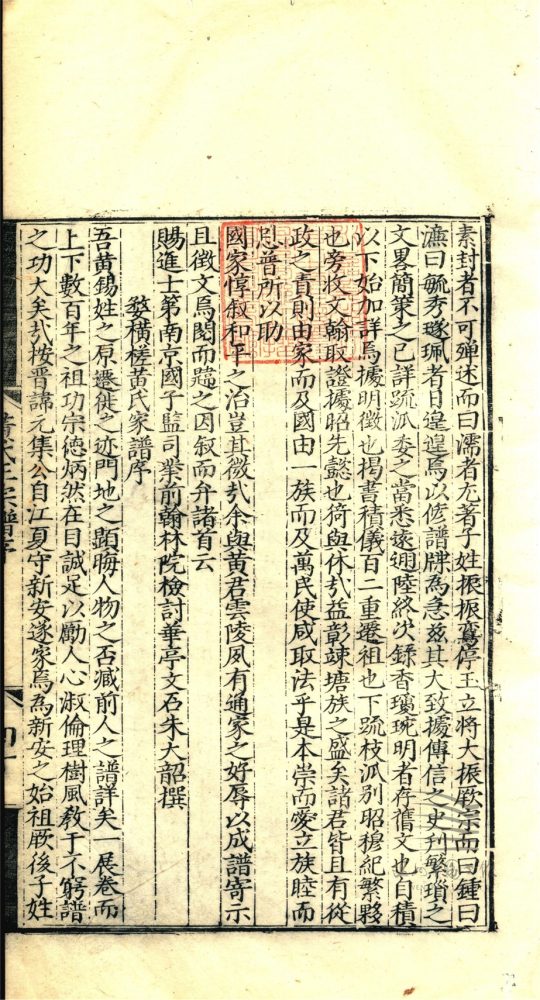 素封者不可殫述而曰濡者尤著子姓振振鸞停玉立將大振厥宗而曰鍾曰
濂曰毓秀璲珮者日遑遑焉以修譜牒為急茲其大致據傳信之史刋繁瑣之
文畧簡策之已詳疏派委之當悉遠遡陸終次錄香瓊琬明者存舊文也自積
以下始加詳焉據明徵也揭書積儀百二重遷祖也下䟽枝派別昭穆紀繁夥
也旁收文翰取證據昭先懿也猗與休㢤益彰竦塘族之盛矣諸君皆且有從
政之責則由家而及國由一族而及萬民使咸取法乎是本崇而愛立族睦而
思普所以助
國家惇叙和平之治豈其微㢤余與黃君雲陵夙有通家之好辱以成譜寄示
且徵文焉閱而韙之因叙而弁諸首云
賜進士第南京國子監司業前翰林院檢討華亭文石朱大韶撰
婺橫槎黃氏家譜序
吾黃錫姓之原遷徙之迹門地之顯晦人物之否臧前人之譜詳矣一展卷而
上下數百年之祖功宗德炳然在目誠足以勵人心淑倫理樹風教于不窮譜
之功大矣㢤按晋諱元集公自江夏守新安遂家焉為新安之始祖厥後子姓